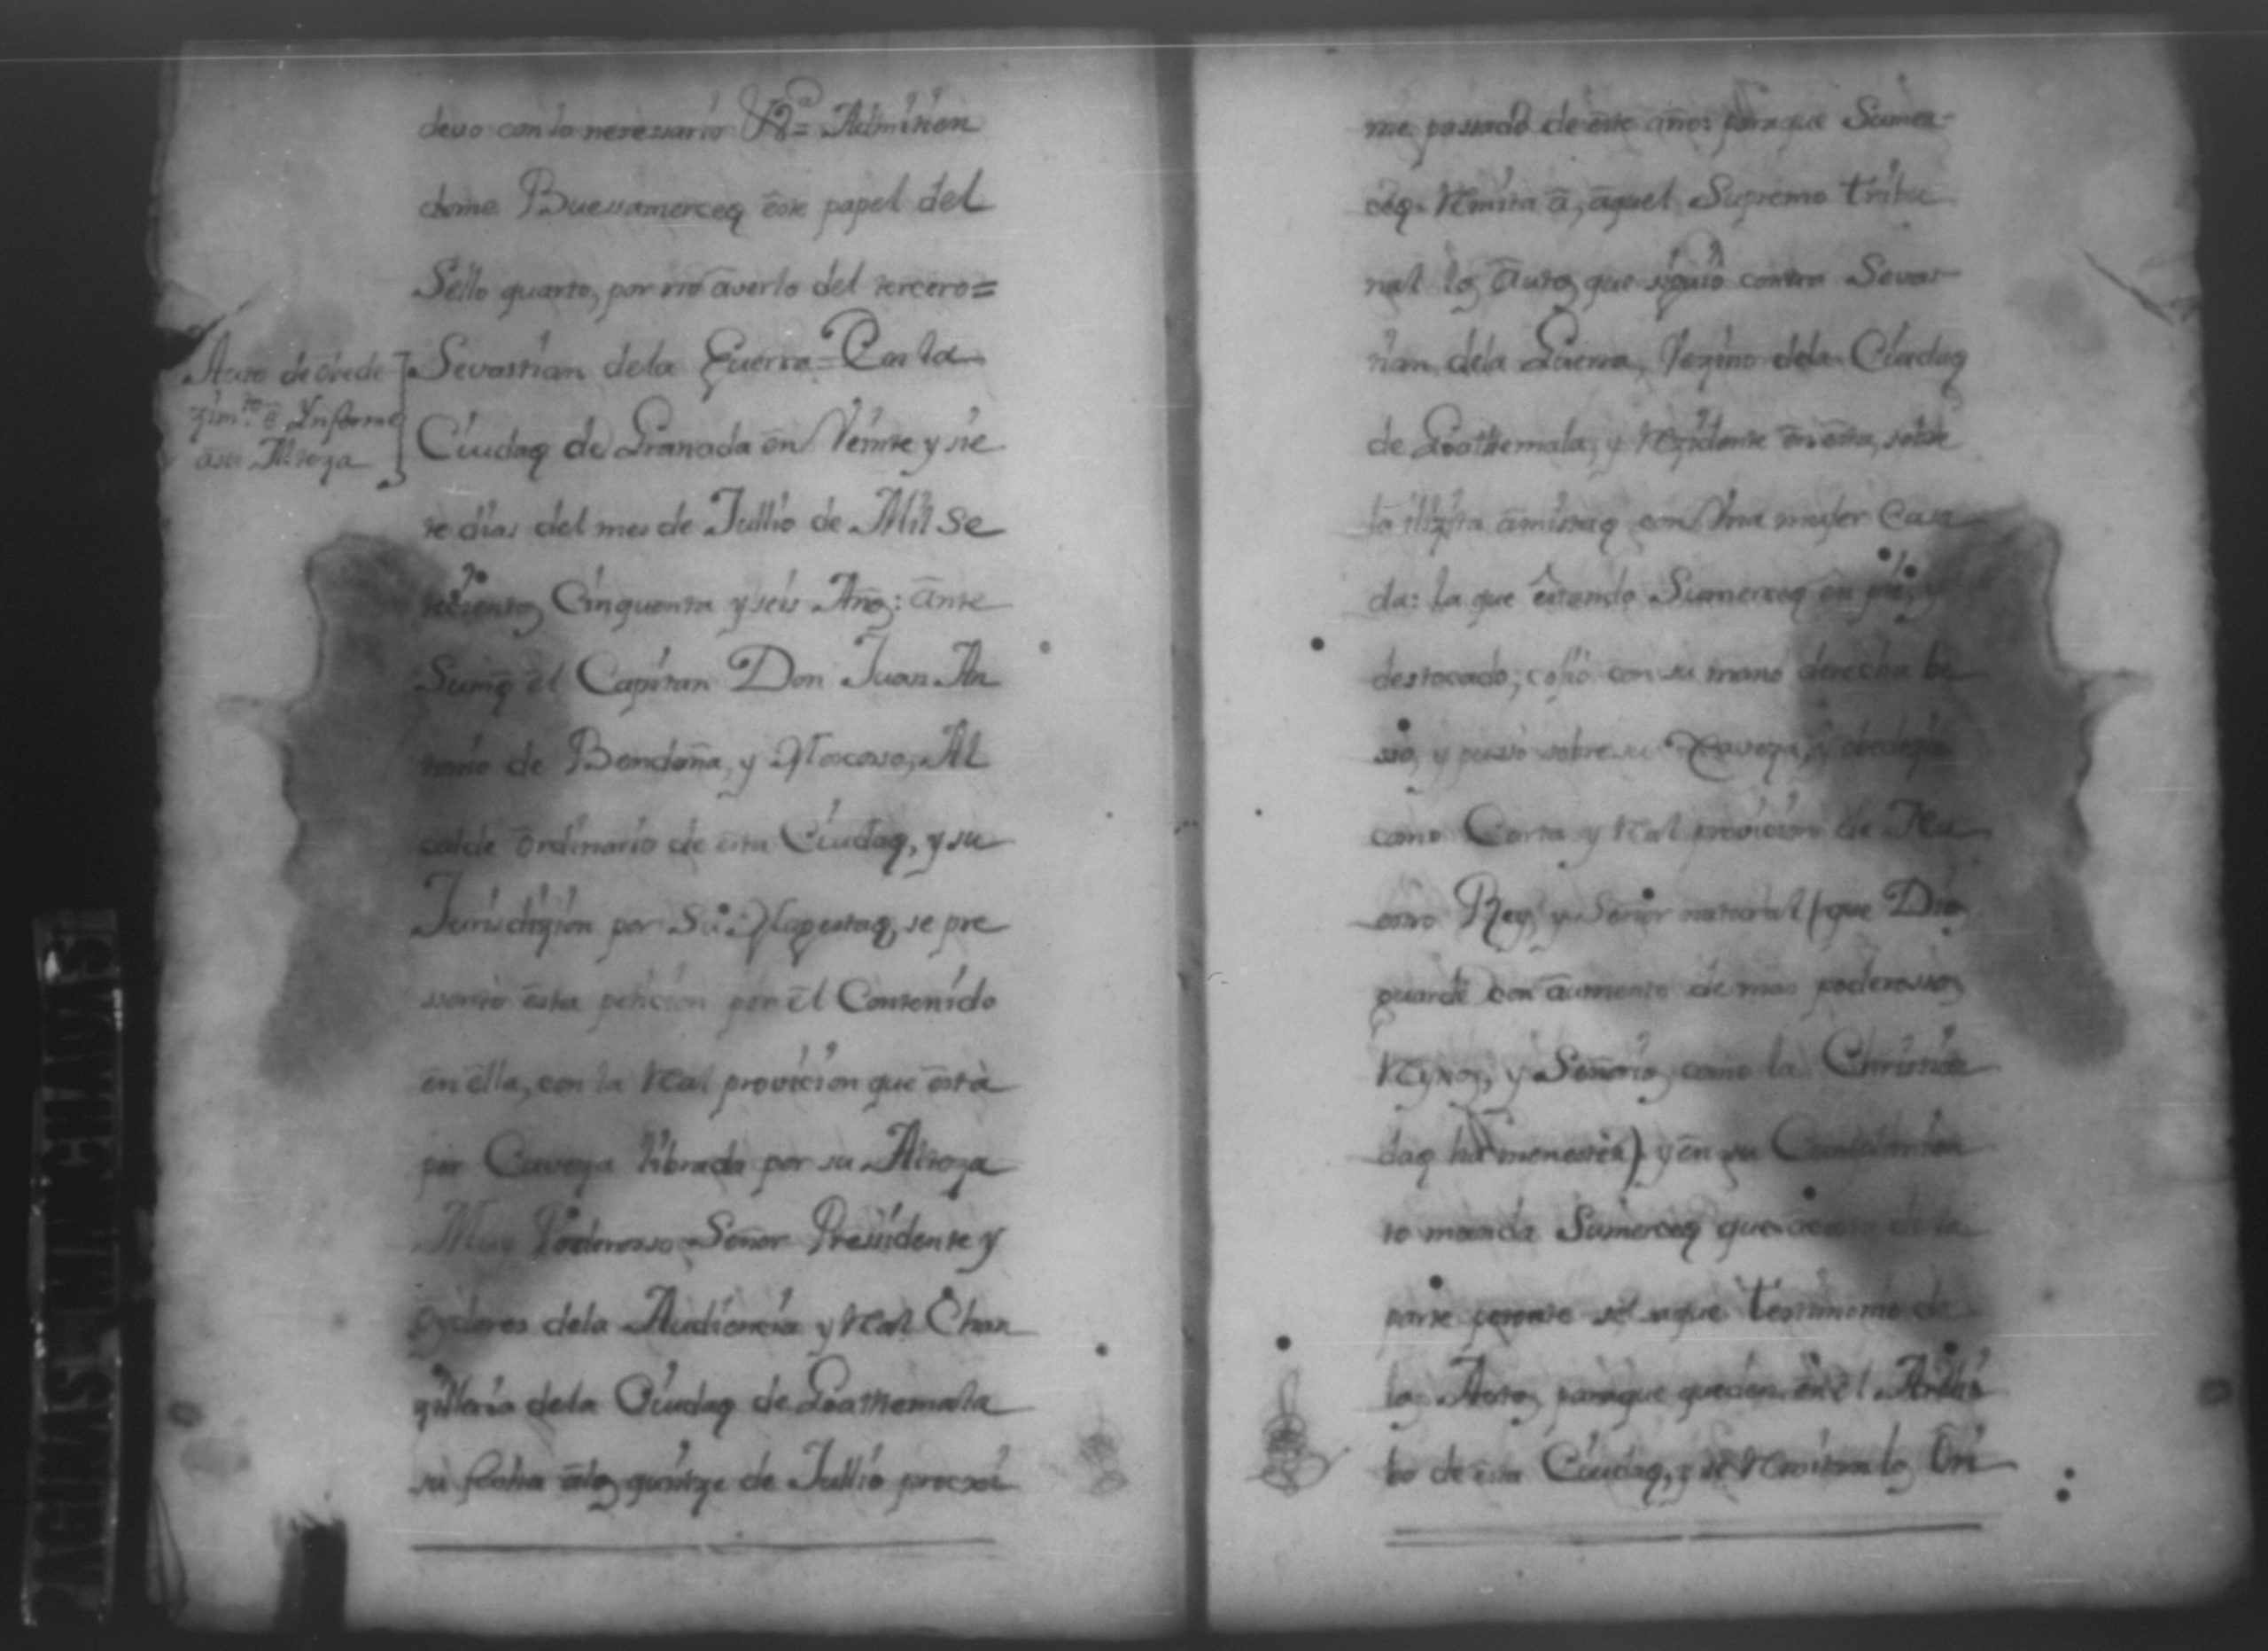 devo con lo nesessario Va= Admition
dome Buessamerceq este papel del
Sello quarto, por no averlo del tercero=
Auto de ovede
zim.to e Ynforme
a su Alteza
Sevastian dela Guerra= En la
Ciudaq de Granada en Veinte y sie
te dias del mes de Jullio de Mil se
tecientos Cinquenta y seis Años: ante
Sumq el Capitan Don Juan An
tonio de Bendaña, y Moscoso, Al
calde ordinario de esta Ciudaq, y su
Jurisdizion por Su Magestaq, se pre
ssento esta peticion por el Contenido
en ella, con la Real provicion que está
por Caveza librada por su Alteza
Muy Poderosso Señor Pressidente y
Oydores dela Audiencia y Real Chan
zilleria dela Ciudaq de Goathemala
su fecha alos quinze de Jullio procsi
mo passado de este año: para que Sumer-
ceq Remita a, aquel Supremo tribu
nal los autos que siguió contra Sevas
tian dela Guerra, Vezino dela Ciudaq
de Goathemala, y Rezidente en esta, sobre
la illizita amistaq con Una mujer Casa
da: la que estando Sumerceq en pie, y
destocado, cojió con su mano derecha be
sso, y pusso sobre su Caveza, y obedezio
como Carta y Real provicion de Nu
estro Rey, y Señor natural (que Dios
guarde con aumento de mas poderossos
Reynos, y Señorios como la Christian
daq ha menester) y en su Cumplimien
to manda Sumerceq que a costa de la
parte se saque testimonio de
los Autos, para que queden en el Archi
bo de esta Ciudaq, y se Remitan los Ori
PAGINAS MANCHADAS